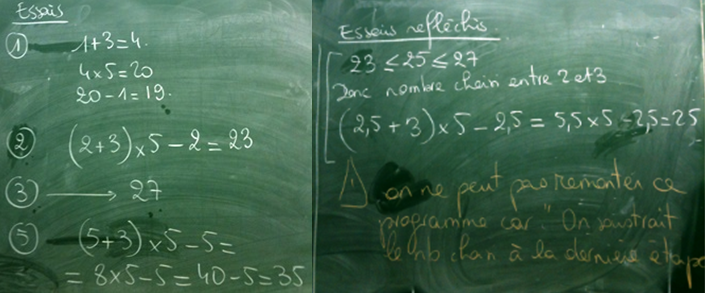 Essais
① 1+3=4.
4×5=20
20-1=19.
② (2+3)×5-2=23
③ → 27
⑤ (5+3)×5-5=
=8×5-5=40-5=35
Essais réfléchis
23≤25≤27
Donc nombre choisi entre 2 et 3
(2,5+3)×5-2,5=5,5×5-2,5=25
⚠ on ne peut pas remonter ce
programme car "On soustrait
le nb choisi à la dernière étape